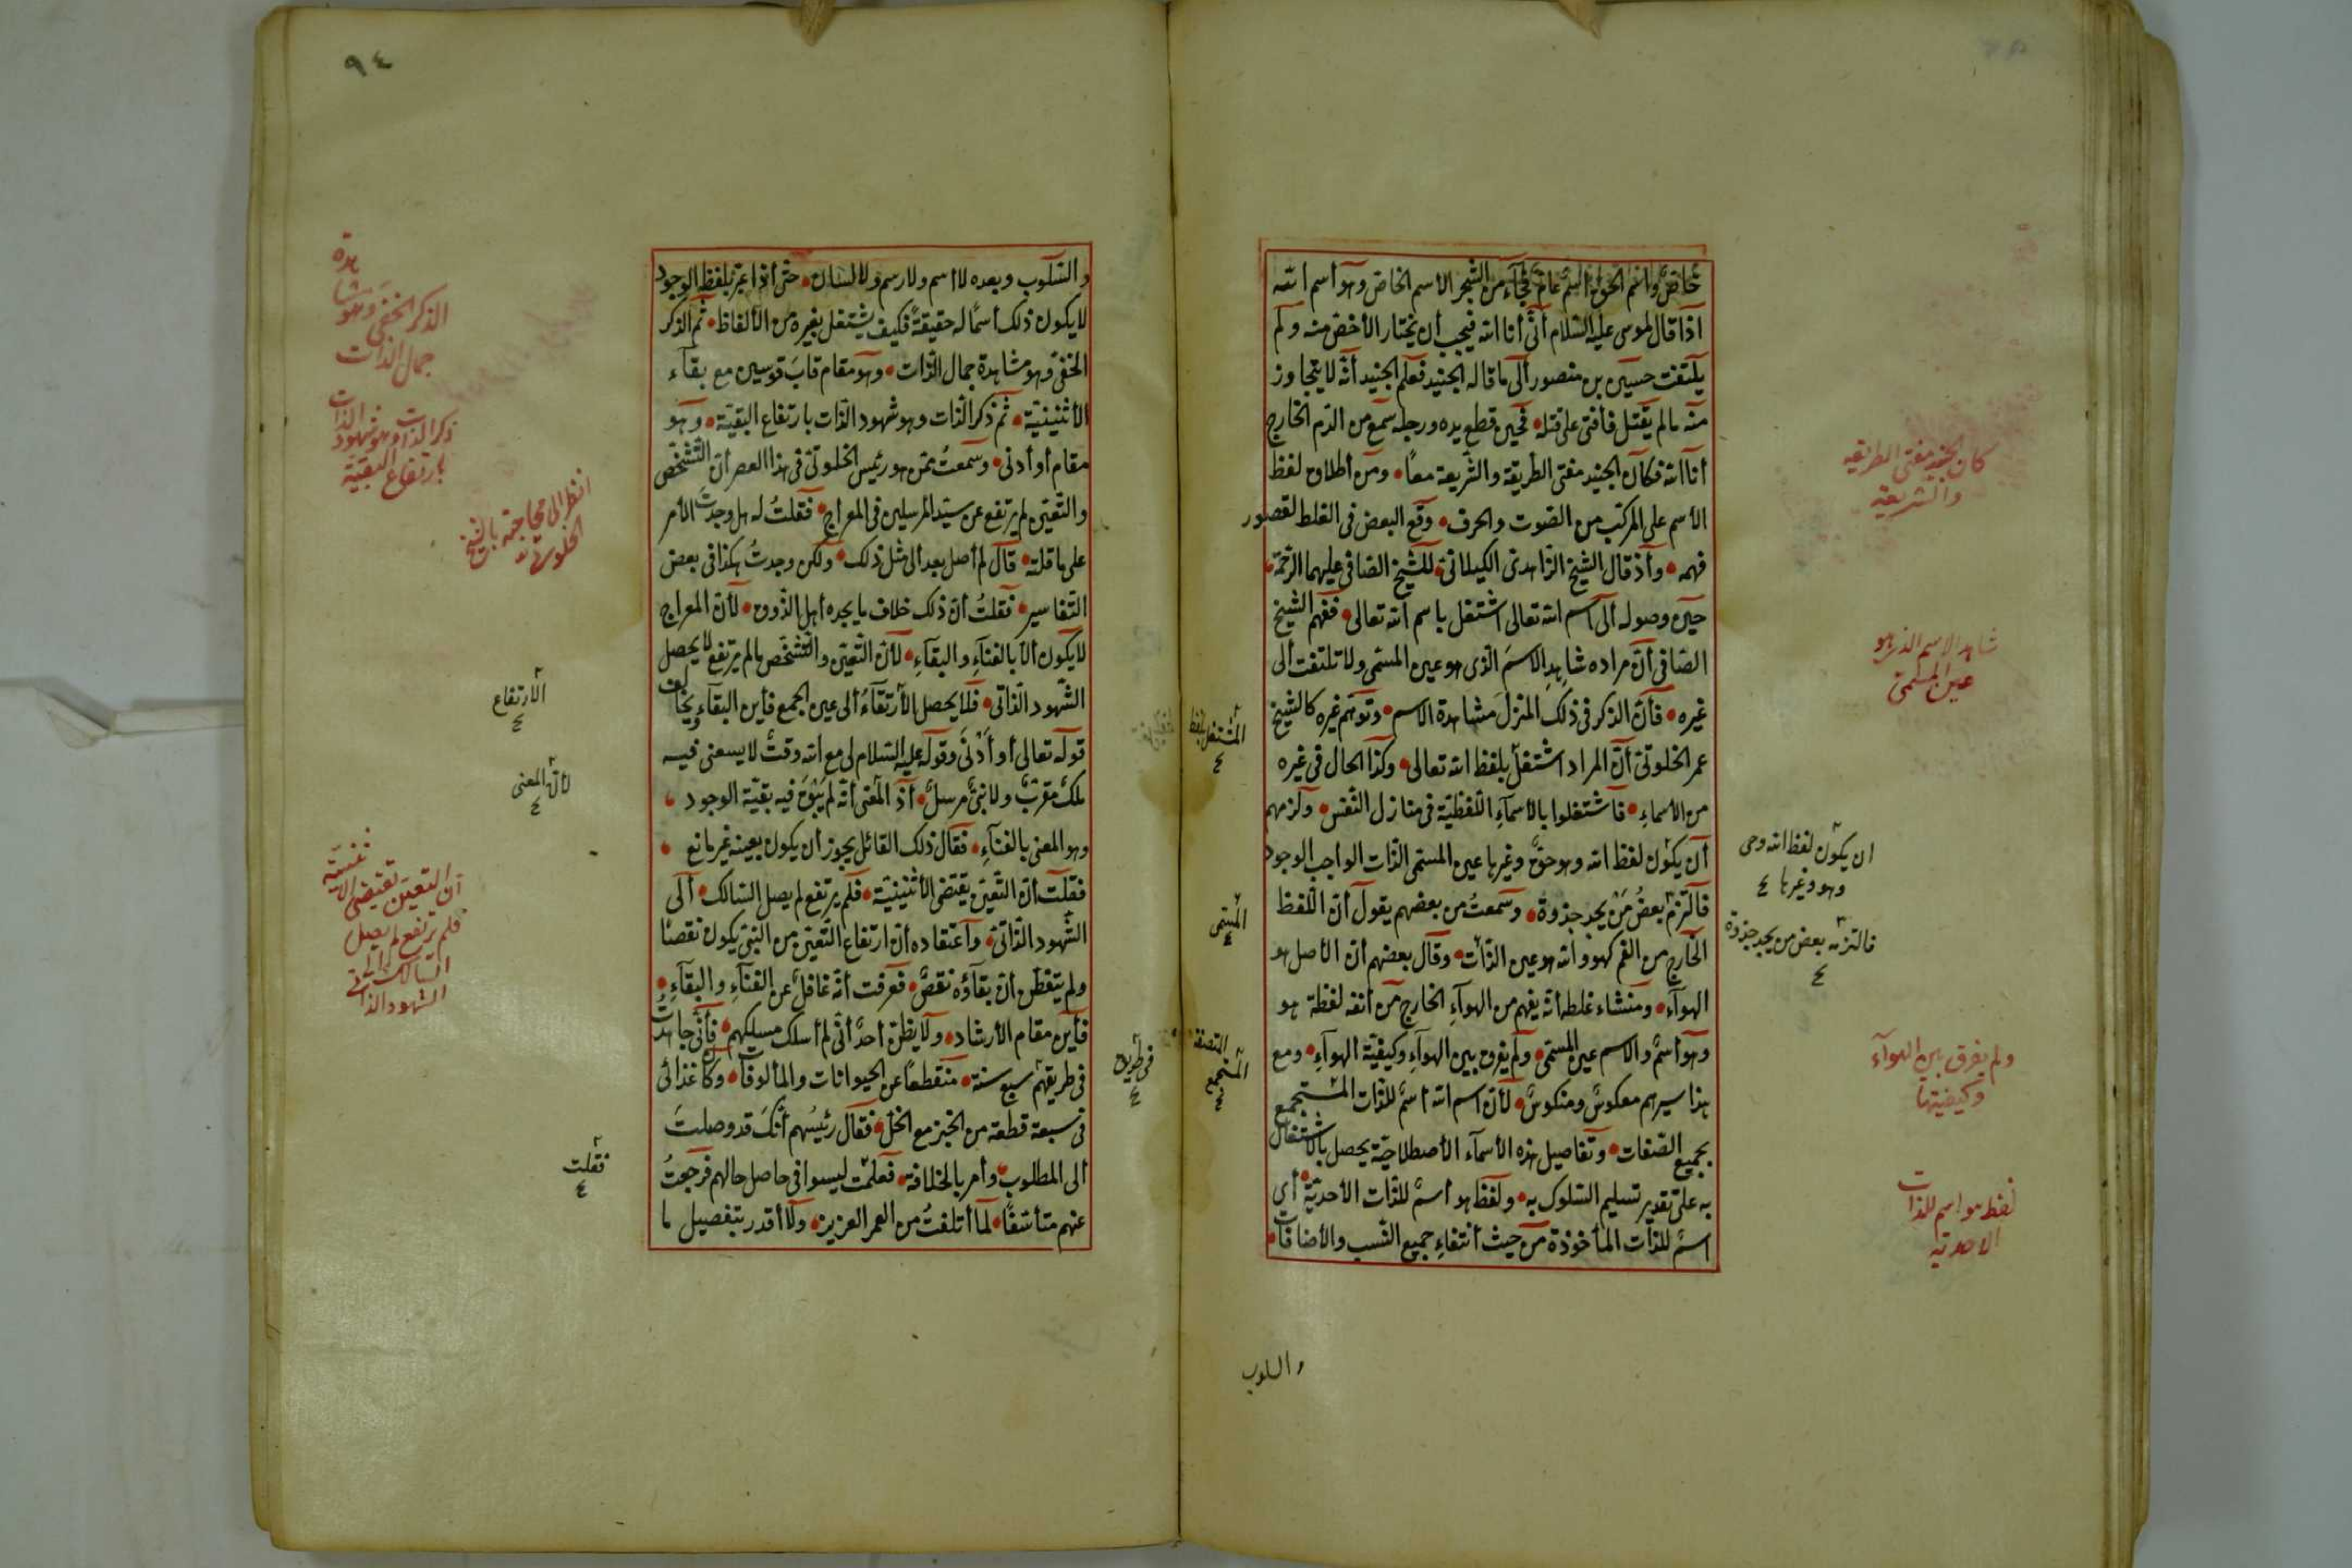 خاصٌّ وأسم الحق أسم عامّ فجاء من الشجر الأسم الخاصّ وهو أسم الله
اذا قال لموسى عليه السّلام أنّى أنا الله فيجب أن يختار الأخصّ منه ولم
يلتفت حسين بن منصور ألى ما قاله الجنيد فعلم الجنيد أنّه لا يتجاوز
منه مالم يقتل فأفتى على قتله فحين قطع يده ورجله سمع من الدّم الخارج
أنا الله فكان الجنيد مفتى الطّريقة والشّريعة معًا ومن أطلاق لفظ
الأسم على المركّب من الصّوت والحرف وقع البعض فى الغلط لقصور
فهمه وأذ قال الشّيخ الزّاهدىّ الكيلانىّ للشّيخ الصّافى عليهما الرّحمة
حين وصوله ألى اسم الله تعالى اشتغل باسم الله تعالى ففهم الشّيخ
الصّافى أنّ مراده شاهِدِ الاسمَ الّذى هو عين المسمّى ولا تلتفت ألى
غيره فأنّ الذّكر فى ذلك المنزل مشاهدة الاسم وتوهّم غيره كالشّيخ
عمر الخلوتىّ أنّ المراد اشتغل بلفظ الله تعالى وكذا الحال فى غيره
من الأسماءِ فاشتغلوا بالأسمآءِ اللّفظيّة فى منازل النّفس ولزمهم
أن يكون لفظ الله وهو حقّ وغيرها عين المسمّى الذّات الواجب الوجود
فالتزم بعضُ مَنْ يجد جذوة وسمعتُ من بعضهم يقول أنّ اللّفظ
الخارج من الفم كهو والله هو عين الذّات وقال بعضهم أنّ الأصل هو
الهوآء ومنشاء غلطه أنّه يفهم من الهوآءِ الخارج من أنفه لفظة هو
وهو أسمٌ والاسم عين المسمّى ولم يفرق بين الهوآءِ وكيفيّة الهوآءِ ومع
هذا سيرهم معكوسٌ ومنكوسٌ لأنّ اسم الله أسمٌ للذّات المستجمع
بجميع الصّفات وتفاصيل هذه الأسمآء الأصطلاحيّة يحصل بالاشتغال
به على تقدير تسليم السّلوك به ولفظ هو أسمٌ للذّات الأحديّة أى
اسمٌ للذّات المأخوذة من حيث أنتفاءِ جميع النّسب والأضافات
والسلوب
كان جنيد مفتى الطريقه
والشريعة
شاهد الاسم الذى هو
عين المسمّى
ان يكون لفظ الله وحى
وهو وغيرها ٤
فالتزمه بعض من يجد جذوة
٤
ولم يفرق بين الهوآء
وكيفيّتها
لفظ هو اسم للذات
الاحديّه
المستجمع
٤
٩٤
والسّلوب وبعده لا أسم ولا رسم ولا لسان حتى أنّ اعبّر بلفظ الوجود
لا يكون ذلك أسمًا له حقيقةً فكيف يشتغل بغيره من الألفاظ ثم الذّكر
الخفىّ وهو مشاهدة جمال الذّات وهو مقام قابَ قوسين مع بقآء
الأثنينيّة ثم ذكر الذّات وهو شهود الذّات بارتفاع البقيّة وهو
مقام أو أدنى وسمعتُ عمّن هو رئيس الخلوتىّ فى هذا العصر أنّ التّشخّص
والتّعيّن لم يرتفع عن سيّد المرسلين فى المعراج فقلتُ له هل وجدتَ الأمر
على ما قلته قال لم أصل بعد ألى مثل ذلك ولكن وجدتُ هكذا فى بعض
التّفاسير فقلتُ أنّ ذلك خلاف ما يجده أهل الذّوق لأنّ المعراج
لا يكون ألّا بالفنآءِ والبقآءِ لأنّ التّعيّن والتّشخّص مالم يرتفع لا يحصل
الشّهود الذّاتى فلا يحصل الأرتقآءُ ألى عين الجمع فأين البقآء ويخالف
قوله تعالى أو أَدْنَى وقوله عليه السّلام لى مع الله وقتٌ لا يسعنى فيه
ملكٌ مقرّبٌ ولا نبىٌّ مرسلٌ أذ المعنى أنّه لم يَبْقَ فيه بقيّة الوجود
وهو المعنى بالفنآءِ فقال ذلك القائل يجوز أن يكون بعينه غير مانع
فقلت أنّ التّعيّن يقتضى الأثنينيّة فلم يرتفع لم يصل السّالك ألى
الشّهود الذّاتىّ وأعتقاده أنّ ارتفاع التّعيّن من النّبىّ يكون نقصًا
ولم يتفطّن أنّ بقآؤه نقصٌ فعرفت أنّه غافلٌ عن الفنآءِ والبقآءِ
فأين مقام الأرشاد ولا يظنّ أحدٌ أنّى لم أسلك مسلكهم فأنّى جاهدتُ
فى طريقهم سبع سنة منقطعًا عن الحيوانات والمألوفات وكان غذائى
فى سبعة قطعة من الخبز مع الخلّ فقال رئيسُهم أنّكَ قد وصلتَ
الى المطلوب وأمر بالخلافة فعلمت ليسوا فى حاصل حالهم فرجعتُ
عنهم متأسّفًا لما أتلفتُ من العمر العزيز ولا أقدر بتفصيل ما
الذكر الخفى وهو مشاهدة
جمال الذات
ذكر الذات وهو شهود الذات
بارتفاع البقيّة
انظر الى محاجته بالشيخ
الارتفاع
٤
لأنّ المعنى
٤
أن التعيّن تقتضى الاثنينيّة
فلم يرتفع لم يصل
السالك الى
الشهود الذاتى
فقلت
٤
فى طريق
٤